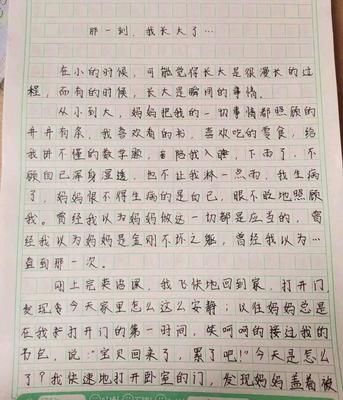 那一刻，我长大了…
在小的时候，可能觉得长大是很漫长的过
程，而有的时候，长大是瞬间的事情。
从小到大，妈妈把我的一切事情都照顾的
井井有条，我喜欢看的书，喜欢吃的零食，给
我讲不懂的数学题，陪我入睡，下雨了，不
顾自己浑身湿透，也不让我淋一点雨，我生病
了，妈妈恨不得生病的是自己，眼不眨地照顾
我。曾经我以为妈妈做这一切都是应当的，曾
经我以为妈妈是金刚不坏之躯，曾经我以为…
直到那一次。
刚上完英语课，我飞快地回到家，打开门
发现今天家里怎么这么安静；以往妈妈总是
在我打开门的第一时间，笑呵呵的接过我的
书包，说：“宝贝回来了，累了吧！”今天是怎么
了？我快速地打开卧室的门，发现妈妈盖着被